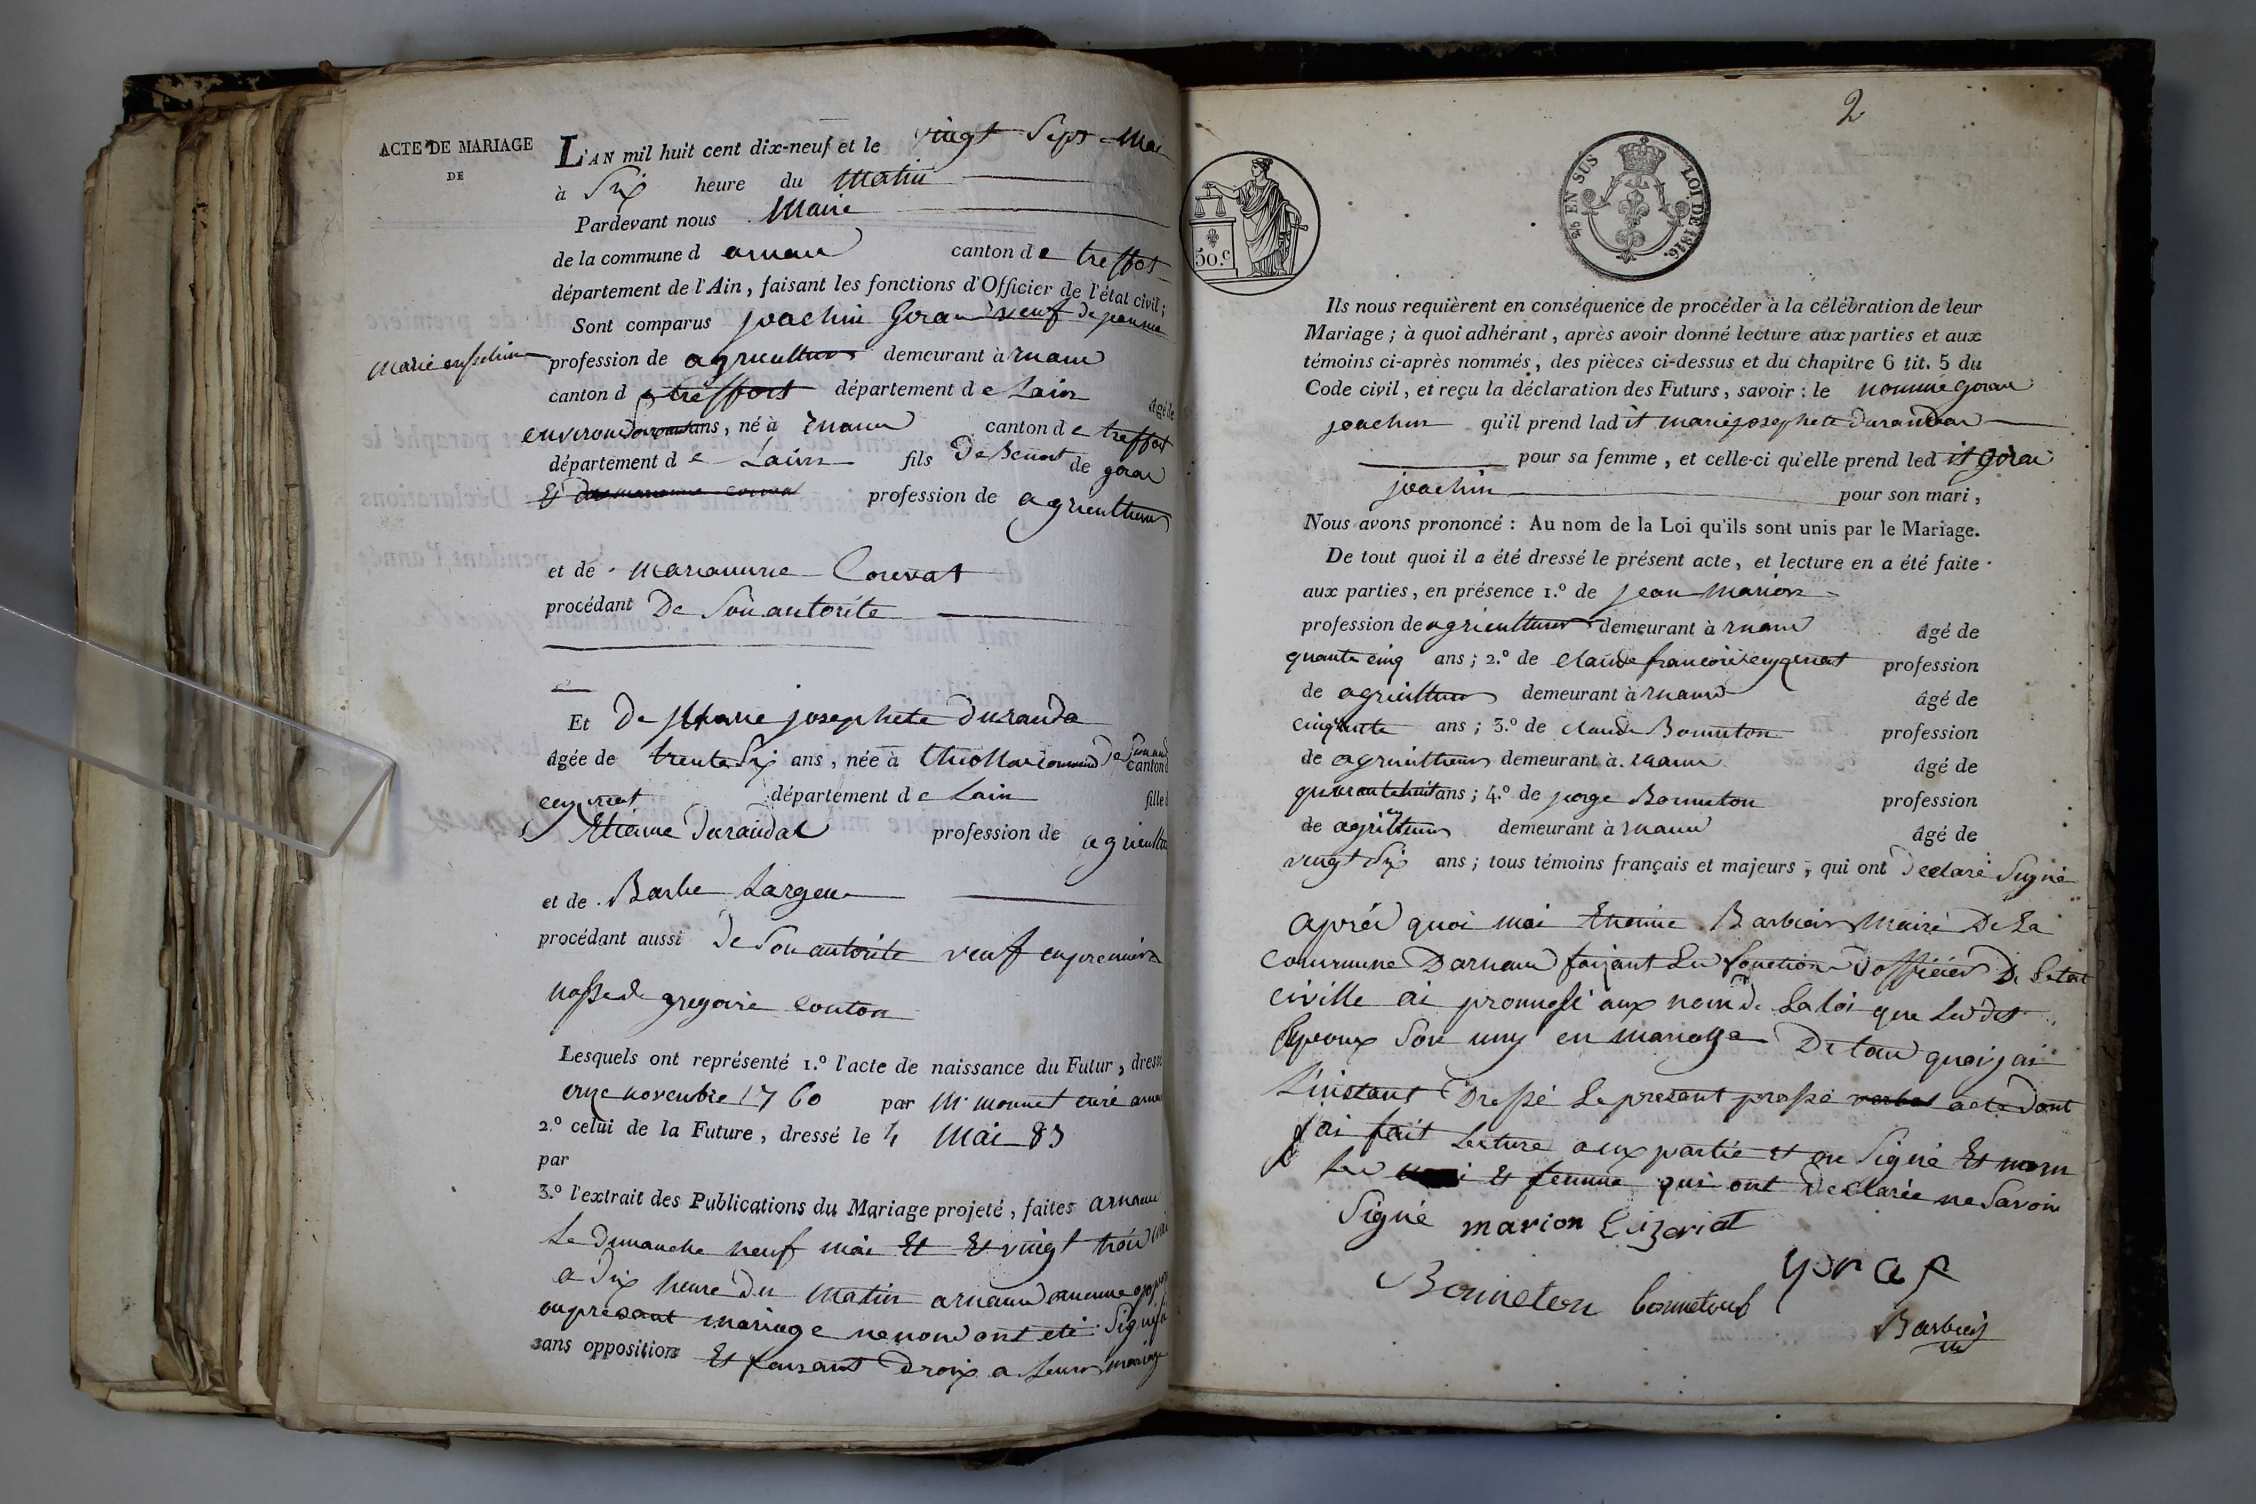 ACTE DE MARIAGE
DE
L'AN mil huit cent dix-neuf et le vingt Sept Mai
à Six heure du Matin
Pardevant nous Maire
de la commune d arnau canton de treffort
département de l'Ain, faisant les fonctions d'Officier de l'état civil;
Sont comparus joachin Goran veuf de
Marie
profession de agriculteur demeurant à rnau
canton de treffort département de Lain âgé de
environ ans, né à canton de treffort
département de Lain fils De Benoit de goran
Et profession de agriculteur
et de marianne Couvat
procédant De Son autorite
Et De Marie josephete Duranda
âgée de trente Six ans, née à canton d
ceyzeriat département de Lain fille d
Etienne Durandal profession de agriculteur
et de Barbe Largeu
procédant aussi De Son autorite veuf en premier
nosse de gregoire Couton
Lesquels ont représenté 1.º l'acte de naissance du Futur, dressé
onze novembre 1760 par Mr monnet curé arnau
2.º celui de la Future, dressé le 4 Mai 83
par
3.º l'extrait des Publications du Mariage projeté, faites arnau
Le Dimanche neuf mai Et Et vingt troi mai
a Dix heure Du Matin arnau aucune
au present mariage ne nous ont eté Signifié
sans opposition Et faisant Droix a leur mariage
2
25 EN SUS LOI DE 1816.
50.c
Ils nous requièrent en conséquence de procéder à la célébration de leur
Mariage; à quoi adhérant, après avoir donné lecture aux parties et aux
témoins ci-après nommés, des pièces ci-dessus et du chapitre 6 tit. 5 du
Code civil, et reçu la déclaration des Futurs, savoir: le nommé goran
joachin qu'il prend ladit marie josephete duranda
pour sa femme, et celle-ci qu'elle prend ledit goran
joachin pour son mari,
Nous avons prononcé: Au nom de la Loi qu'ils sont unis par le Mariage.
De tout quoi il a été dressé le présent acte, et lecture en a été faite
aux parties, en présence 1.º de jean Marion
profession de agriculteur demeurant à rnau âgé de
quante cinq ans; 2.º de Claude francois ceyzeriat profession
de agriculteur demeurant à rnau âgé de
cinquante ans; 3.º de claude Bonneton profession
de agriculteur demeurant à rnau âgé de
quarante huit ans; 4.º de jorge Bonneton profession
de agriculteur demeurant à rnau âgé de
vingt Six ans; tous témoins français et majeurs, qui ont Declaré Signé
aprés quoi moi Etienne Barbier Maire De La
commune Darnau faisant Les fonction Dofficier De Letat
civille ai prononsé aux nom De La loi que Les dit
Epoux Son uny en mariage De tout quoi jai
Linstant Dressé Le presant prossé verbal acte dont
jai fait Lecture aux partie et on Signé Et nom
Les mari Et femme qui ont Declarée ne Savoir
Signé marion Cizeriat
Bonneton bonneton
Barbier